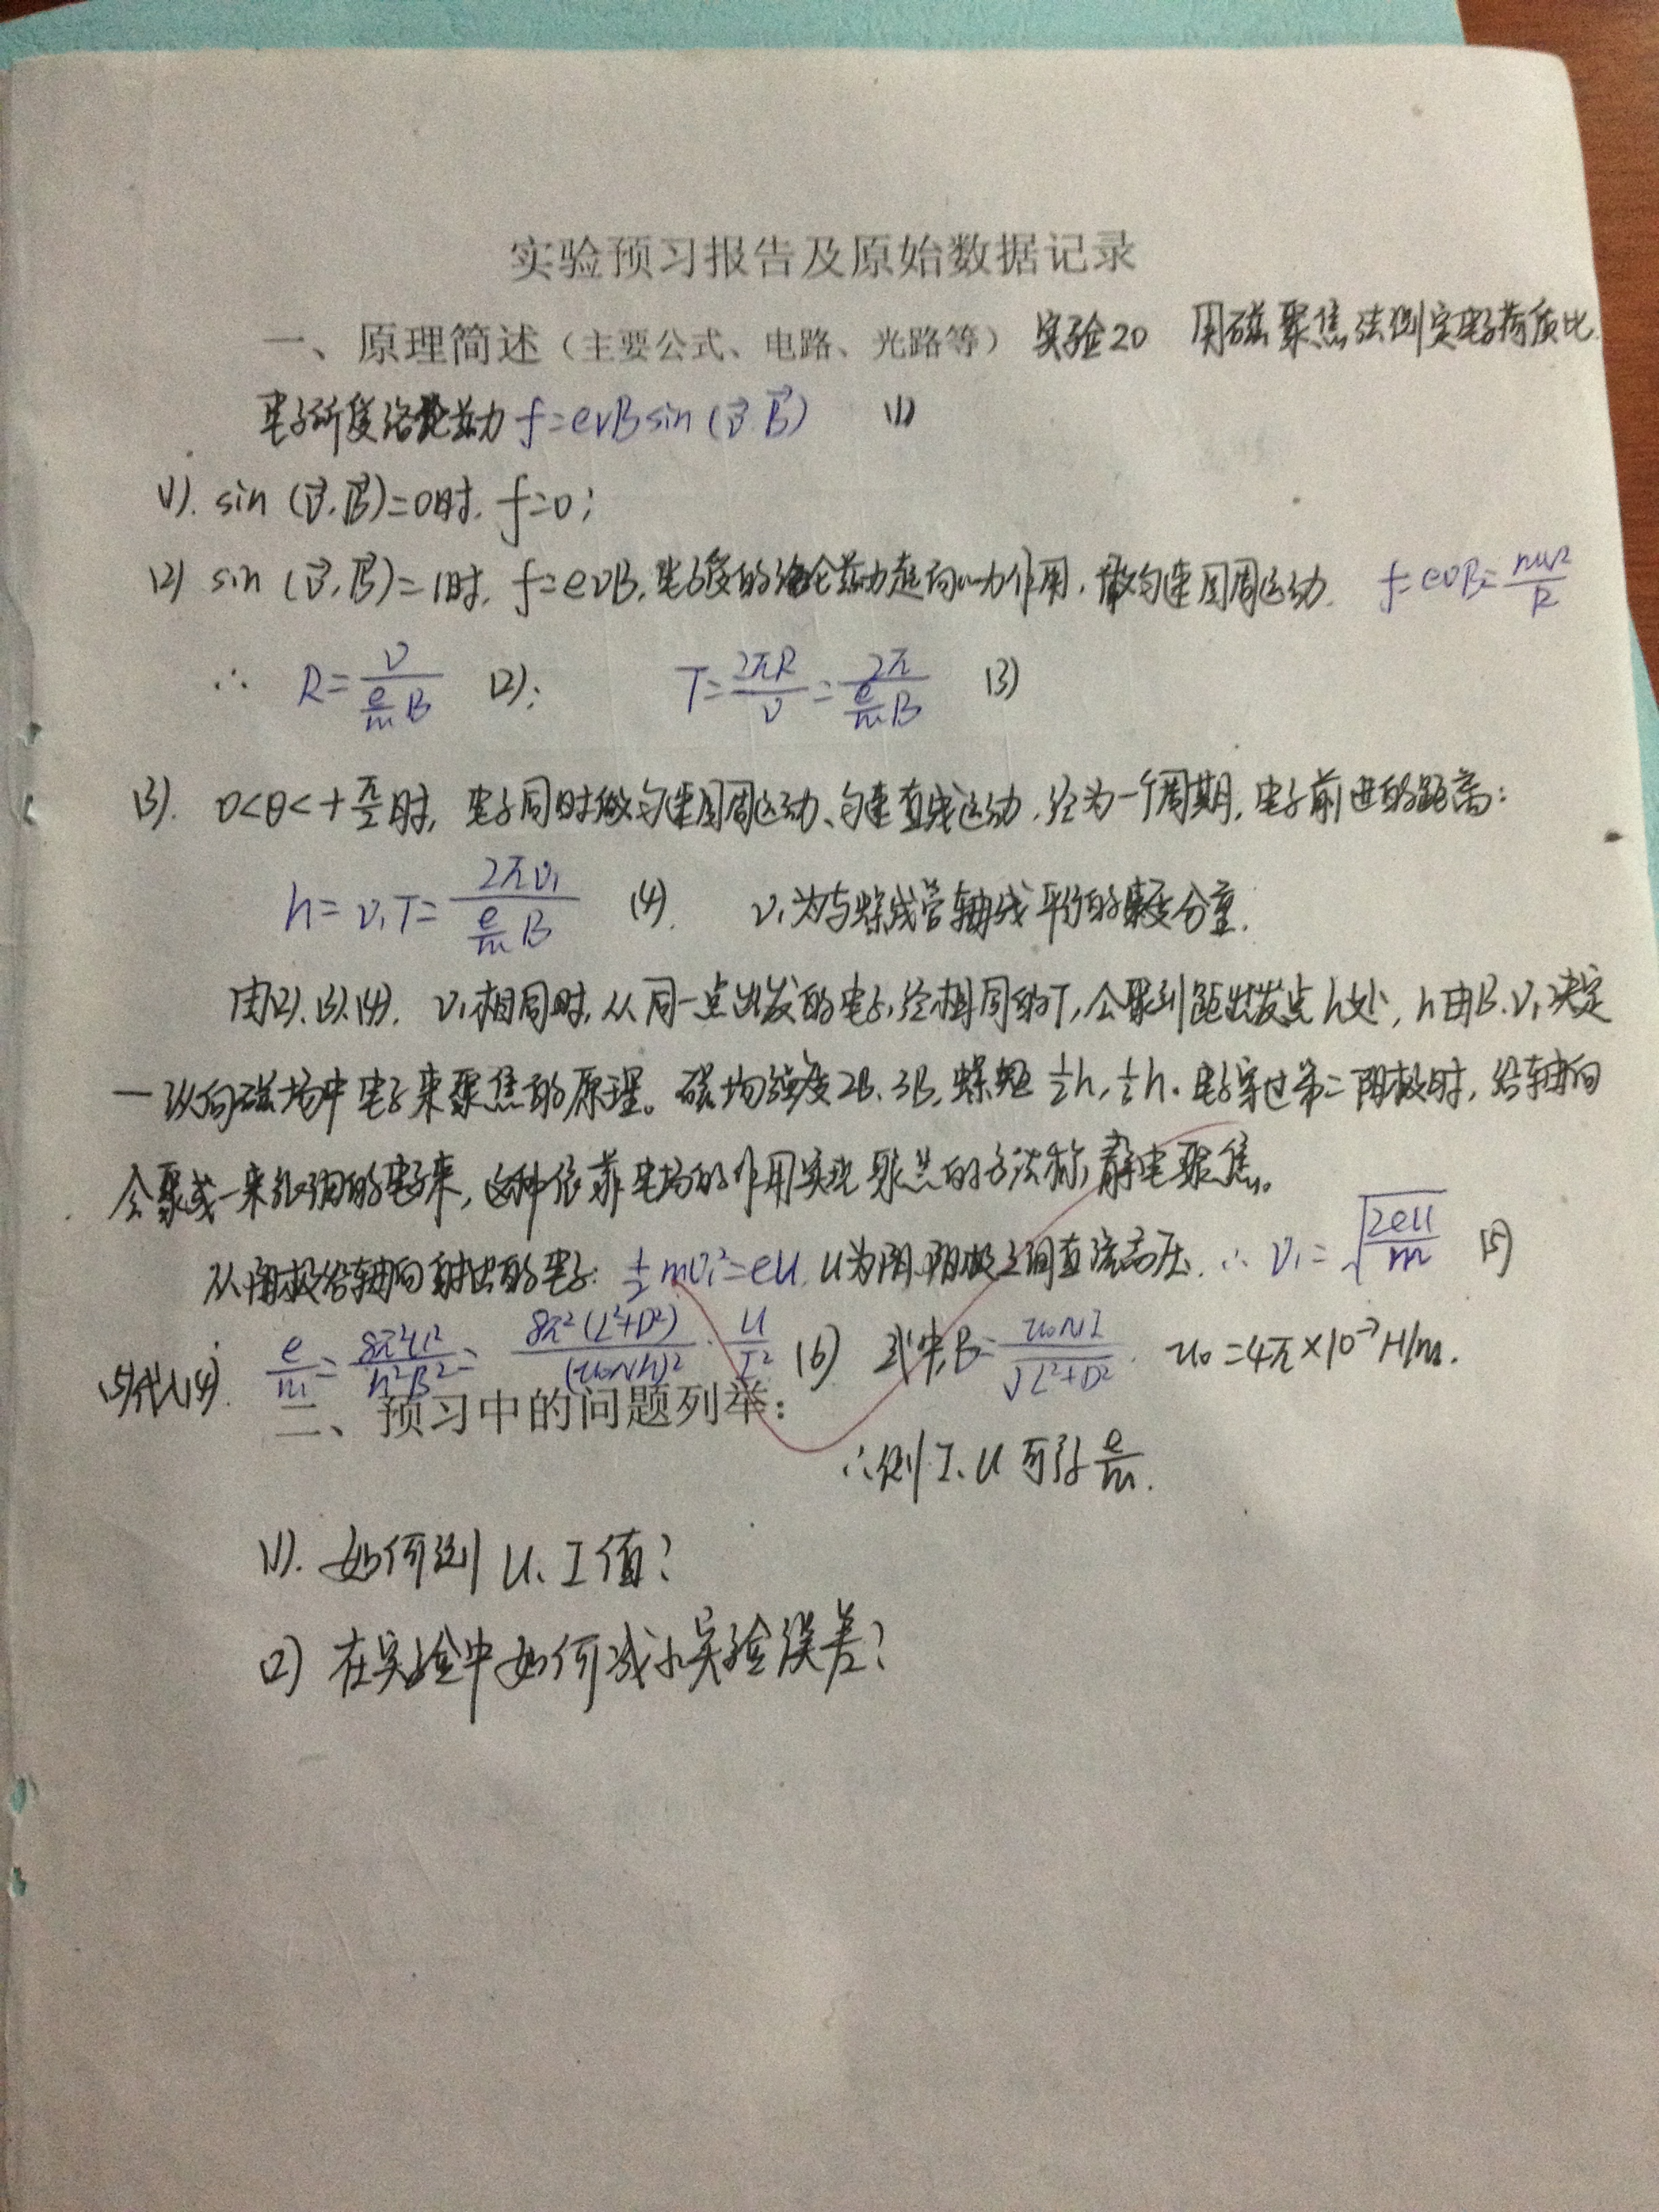 实验预习报告及原始数据记录
一、原理简述（主要公式、电路、光路等） 实验20 用磁聚焦法测定电子荷质比.
电子所受洛伦兹力 f=evBsin(v⃗.B⃗) (1)
(1). sin(v⃗.B⃗)=0时, f=0;
(2) sin(v⃗.B⃗)=1时, f=evB, 电子受的洛伦兹力起向心力作用, 做匀速圆周运动. f=evB=mv²/R
∴ R=v/(e/m B) (2); T=2πR/v=2π/(e/m B) (3)
(3). 0<θ<+π/2时, 电子同时做匀速圆周运动、匀速直线运动, 经为一个周期, 电子前进的距离:
h=v₁T=2πv₁/(e/m B) (4). v₁为与螺线管轴线平行的速度分量.
由(2).(3).(4). v₁相同时, 从同一点出发的电子, 经相同的T, 会聚到距出发点h处, h由B.v₁决定
—纵向磁场中电子束聚焦的原理。磁场强度2B、3B, 螺距½h,⅓h. 电子穿过第二阳极时, 沿轴向
会聚成一束很细的电子束, 这种依靠电场的作用实现聚焦的方法称静电聚焦。
从阴极沿轴向射出的电子: ½mv₁²=eU. U为阴.阳极之间直流高压. ∴ v₁=√(2eU/m) (5)
(5)代入(4). e/m=8π²U/h²B²=8π²(L²+D²)/(u₀Nh)²·U/I² (6) 式中B=u₀NI/√(L²+D²). u₀=4π×10⁻⁷H/m.
二、预习中的问题列举：
∴测I、U可得e/m.
(1). 如何测U、I值?
(2) 在实验中如何减小实验误差?